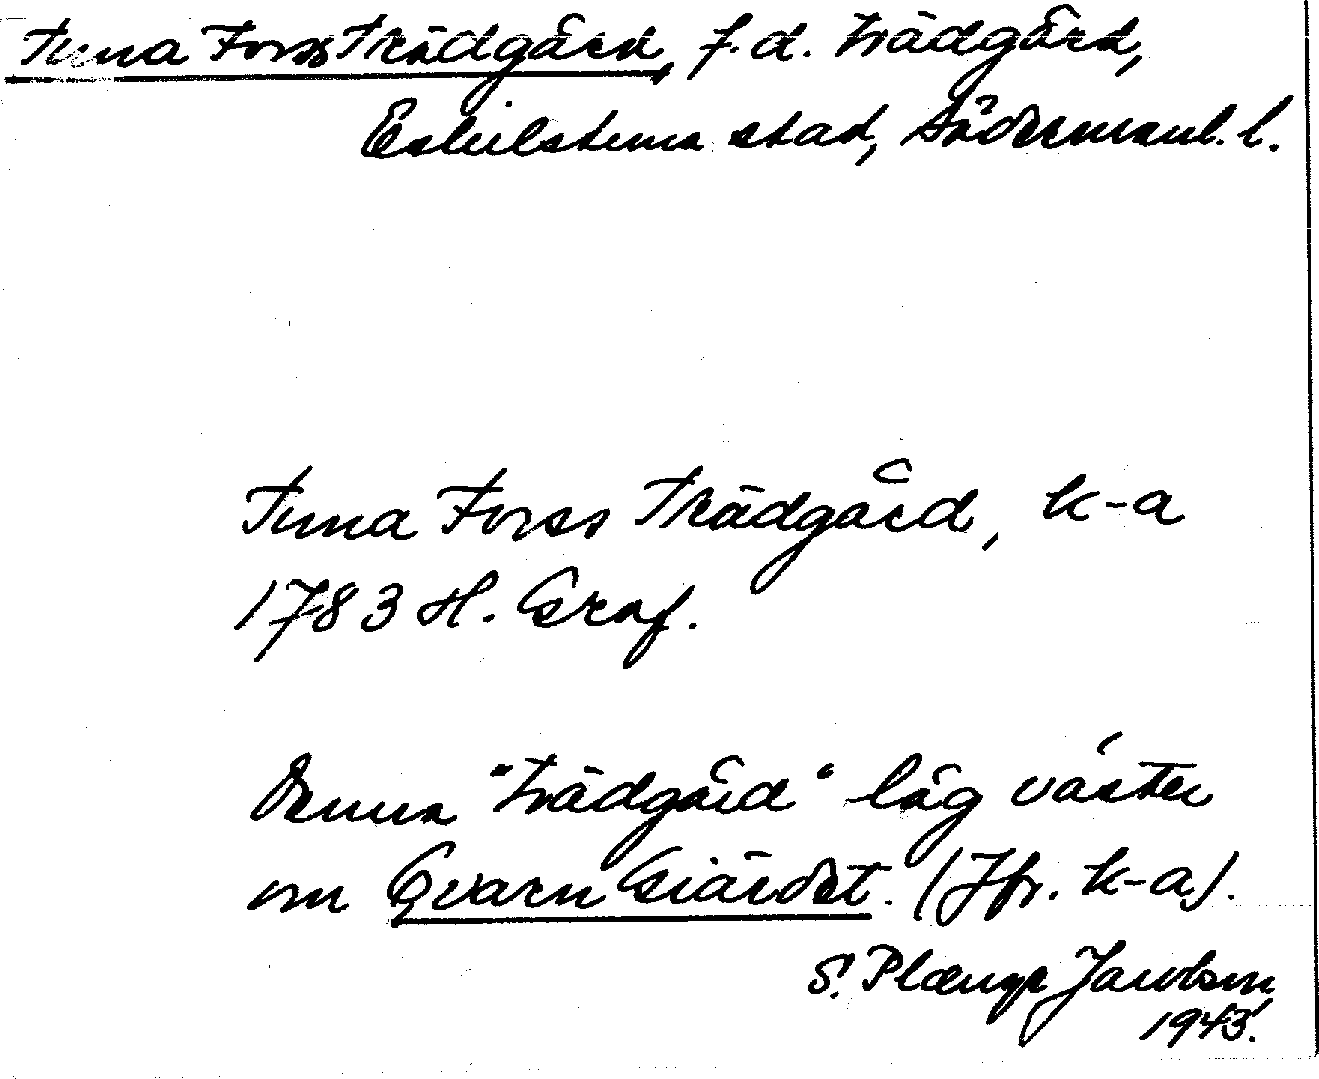 Tuna Forss Trädgård, f.d. trädgård,
Eskilstuna stad, Södermanl. l.
Tuna Forss Trädgård, k-a
1783 H. Graf.
Denna "trädgård" låg väster
om Qvarn Giärdet. (Jfr. k-a).
S. Plænge Jacobson
1943.